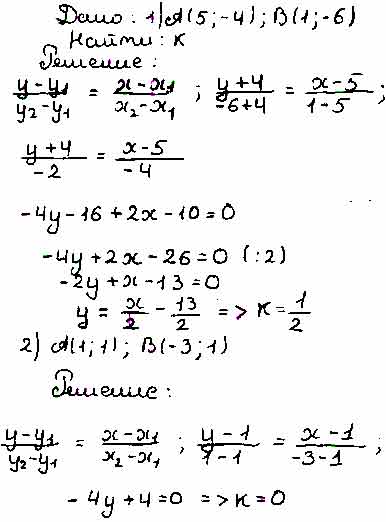 Дано: 1) A(5;-4); B(1;-6)
Найти: к
Решение:
(y-y₁)/(y₂-y₁) = (x-x₁)/(x₂-x₁) ; (y+4)/(-6+4) = (x-5)/(1-5) ;
(y+4)/(-2) = (x-5)/(-4)
-4y-16+2x-10=0
-4y+2x-26=0 (:2)
-2y+x-13=0
y = x/2 - 13/2 => к = 1/2
2) A(1;1); B(-3;1)
Решение:
(y-y₁)/(y₂-y₁) = (x-x₁)/(x₂-x₁) ; (y-1)/(1-1) = (x-1)/(-3-1) ;
-4y+4=0 => к=0